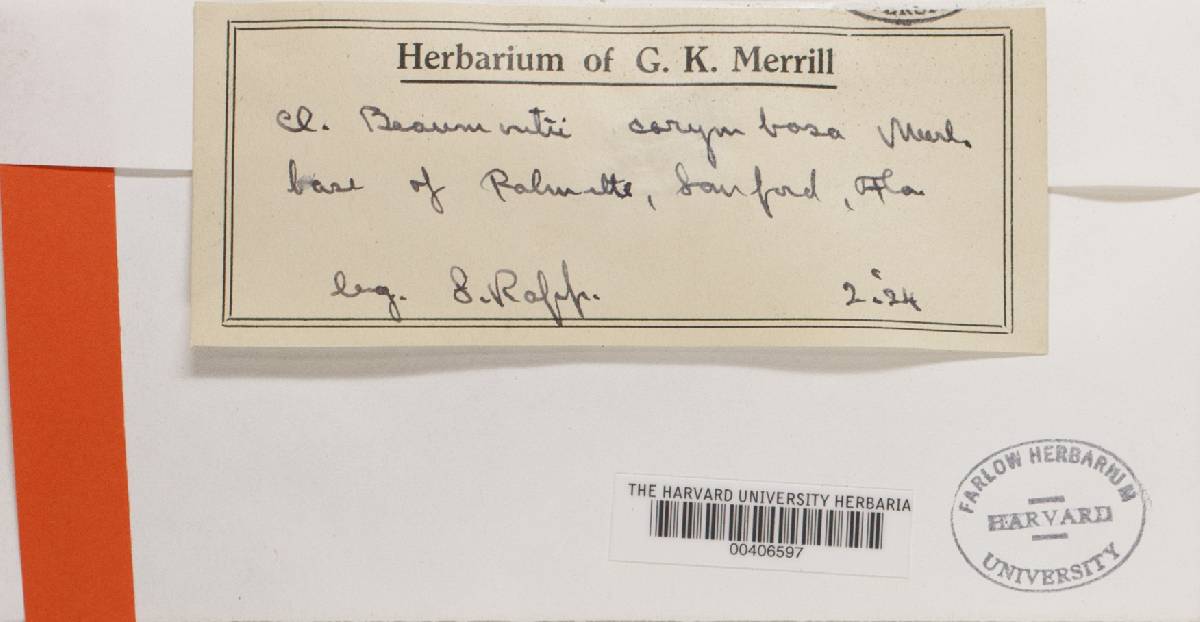 Herbarium of G. K. Merrill
Cl. Beaumontii corymbosa Merl.
base of Palmetto, Sanford, Fla
leg. S. Rapp.
2.24
THE HARVARD UNIVERSITY HERBARIA
00406597
FARLOW HERBARIUM
HARVARD
UNIVERSITY